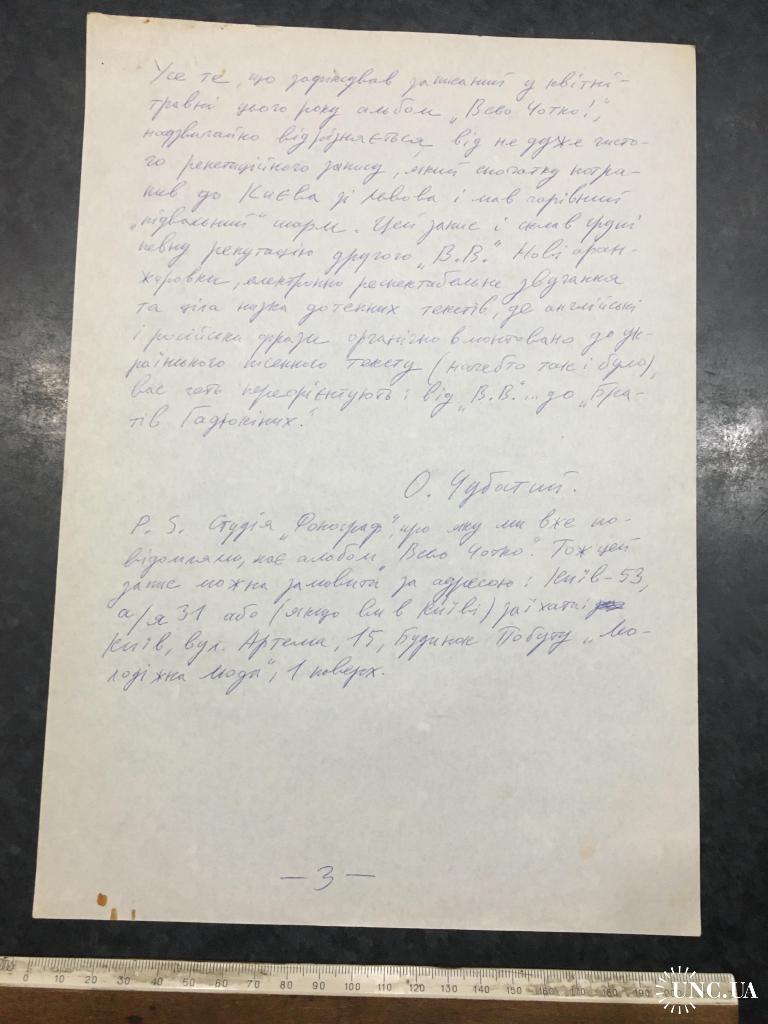 Усе те, що зафіксував записаний у квітні-
травні цього року альбом „Всьо Чотко!",
надзвичайно відрізняється від не дуже чисто-
го репетиційного запису, який спочатку потра-
пив до Києва зі Львова і мав чарівний
„підвальний" шарм. Цей запис і склав групі
певну репутацію другого „В.В." Нові аран-
жировки, електронно респектабельне звучання
та ціла низка дотепних текстів, де англійські
і російські фрази органічно вмонтовано до ук-
раїнського пісенного тексту (начебто так і було),
вас геть переорієнтують: від „В.В."... до „Бра-
тів Гадюкіних."
О. Чубатий.
P. S. Студія „Фонограф", про яку ми вже по-
відомляли, має альбом „Всьо Чотко". Тож цей
запис можна замовити за адресою: Київ-53,
а/я 31 або (якщо ви в Києві) заїхати
Київ, вул. Артема, 15, Будинок Побуту „Мо-
лодіжна мода", 1 поверх.
— 3 —
0 10 20 30 40 50 60 70 80 90 100 110 120 130 140 150 160 170 180 190
UNC.UA